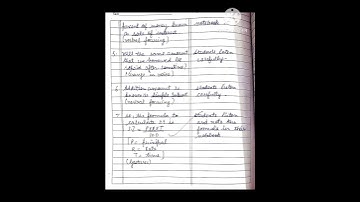 Percent of money known
as rate of interest
(verbal focusing)
notebook
5. Will the same amount
that we borrowed be
repaid after sometime
(Change in voice)
students listen
carefully
6. Addition amount is
known as simple interest
(verbal focusing)
students listen
carefully
7. So the formula to
calculate SI is
SI = P×R×T
100
P = principal
R = Rate
T = time
(gesture)
students listen
and note the
formula in their
notebook